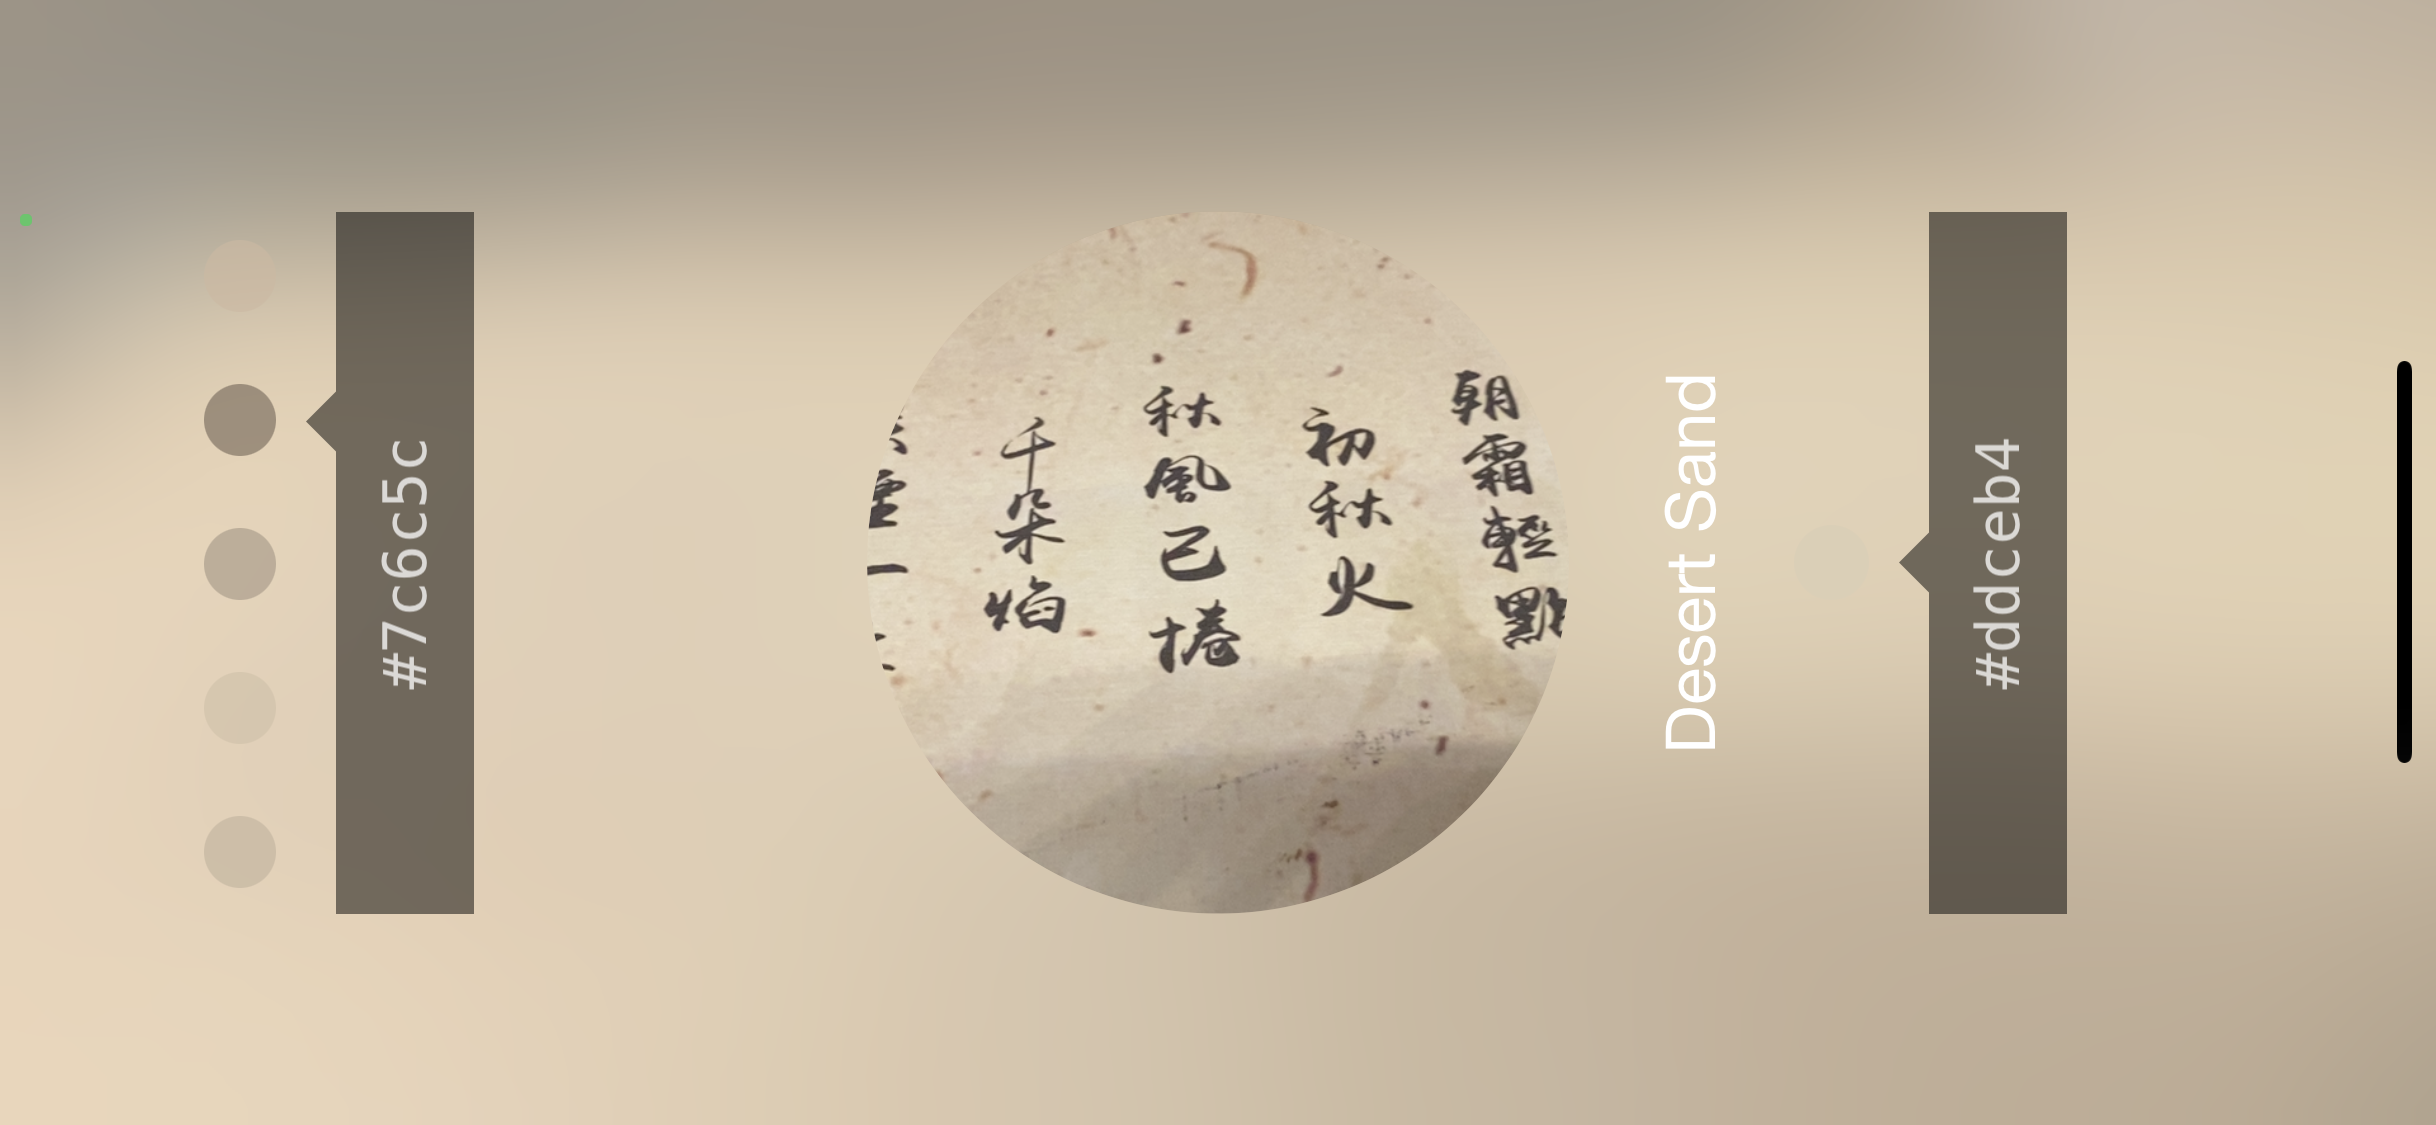 #7c6c5c
朝霜輕點
初秋火
秋風已捲
千朵焰
一
Desert Sand
#ddceb4